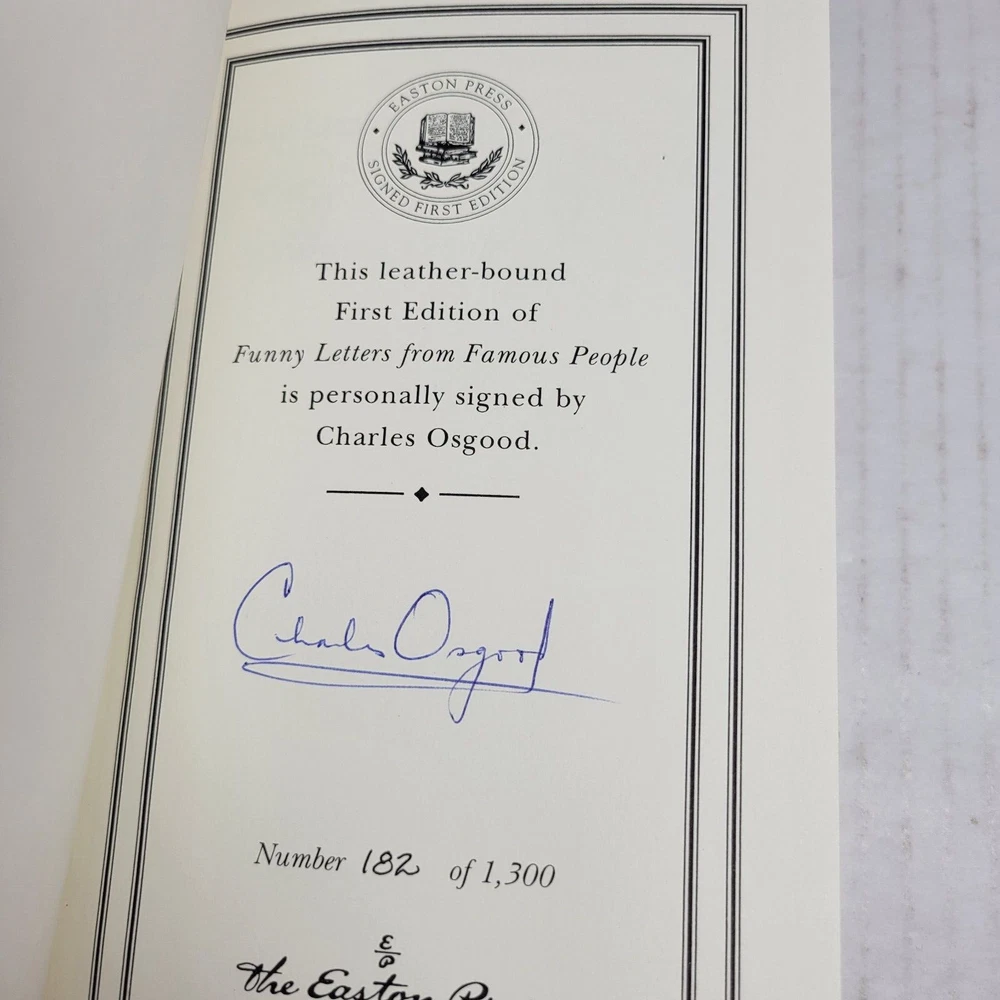 EASTON PRESS
SIGNED FIRST EDITION
This leather-bound
First Edition of
Funny Letters from Famous People
is personally signed by
Charles Osgood.
Charles Osgood
Number 182 of 1,300
the Easton